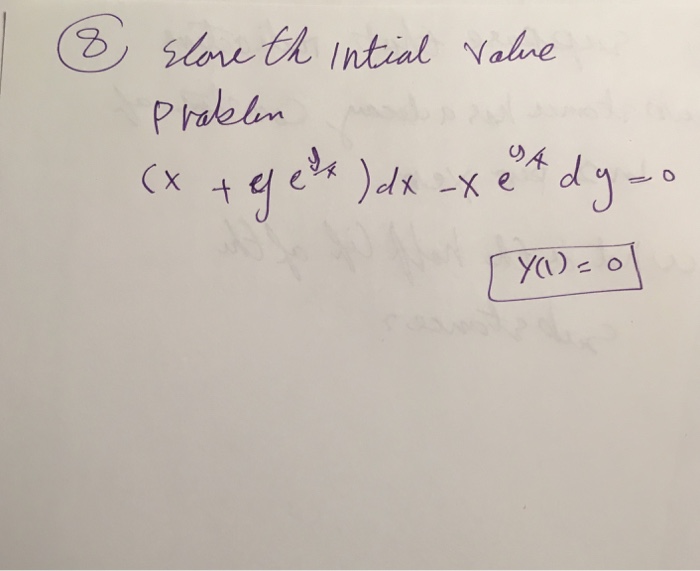 ⑧ Slove th intial value
Problem
(x + y e^{y/x}) dx - x e^{y/x} dy = 0
y(1) = 0